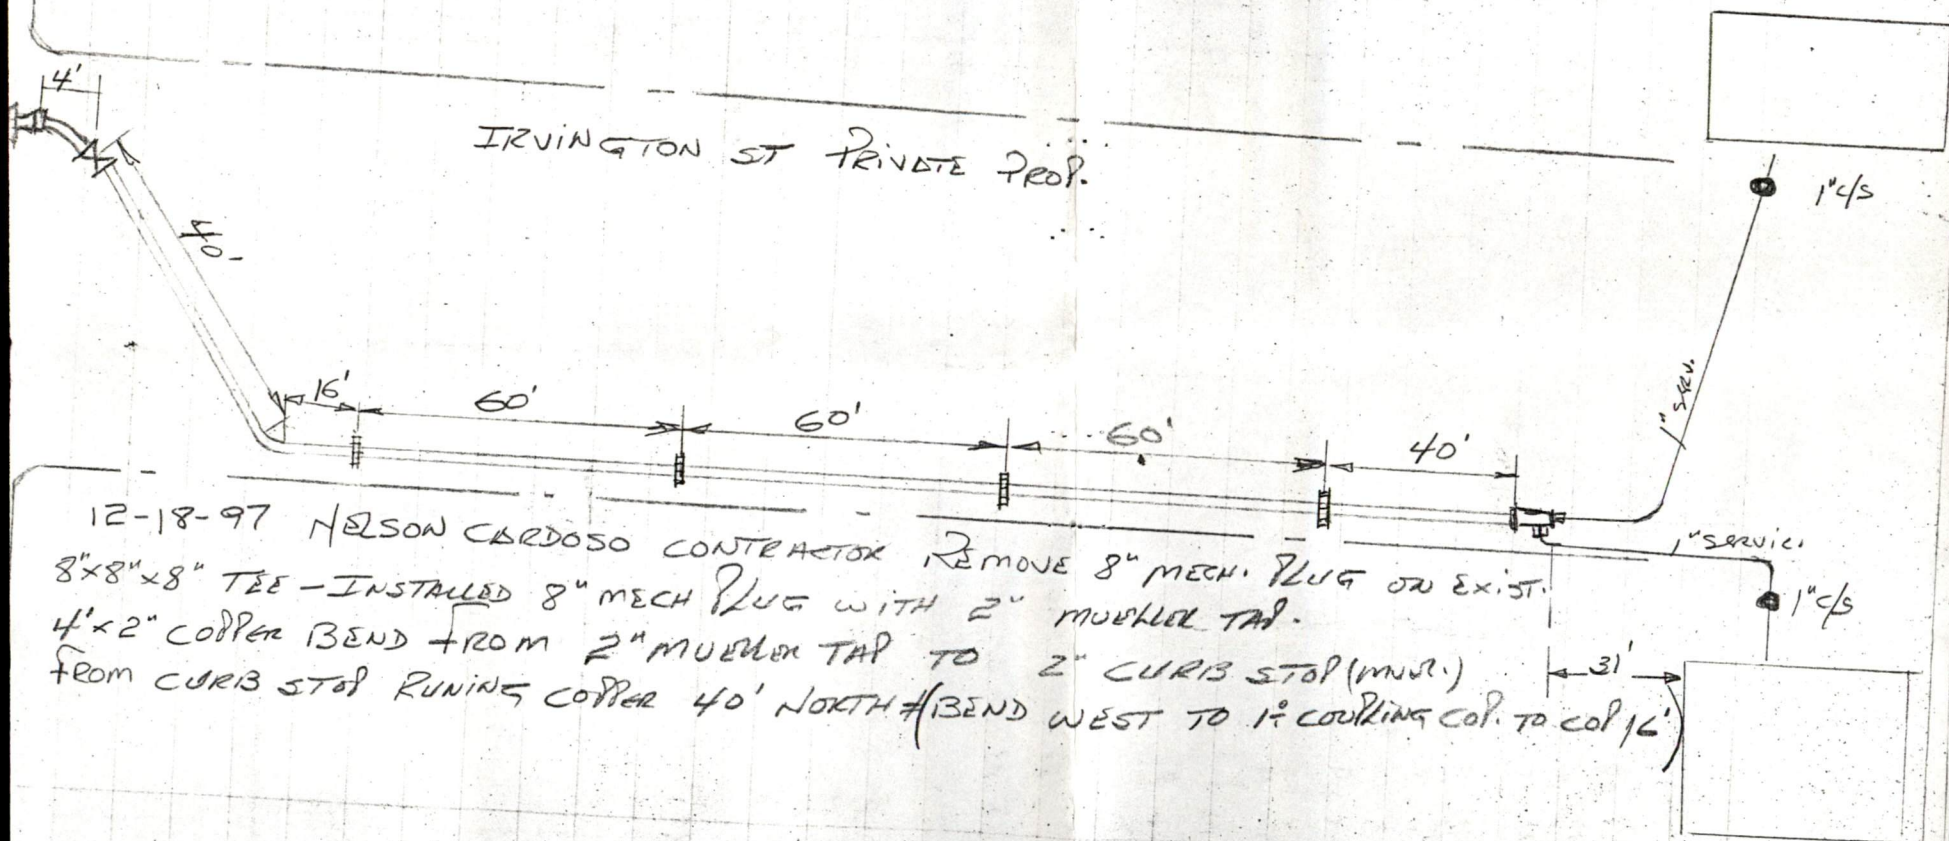 4'
IRVINGTON ST PRIVATE PROP.
1"c/s
40'
16'
60'
60'
60'
40'
1" SERV.
1" SERVIC.
1"c/s
31'
12-18-97 NELSON CARDOSO CONTRACTOR REMOVE 8" MECH. PLUG ON EXIST.
8"x8"x8" TEE - INSTALLED 8" MECH PLUG WITH 2" MUELLER TAP.
4'x2" COPPER BEND FROM 2" MUELLER TAP TO 2" CURB STOP (MUR.)
FROM CURB STOP RUNING COPPER 40' NORTH (BEND WEST TO 1st COUPLING COP. TO COP 16')